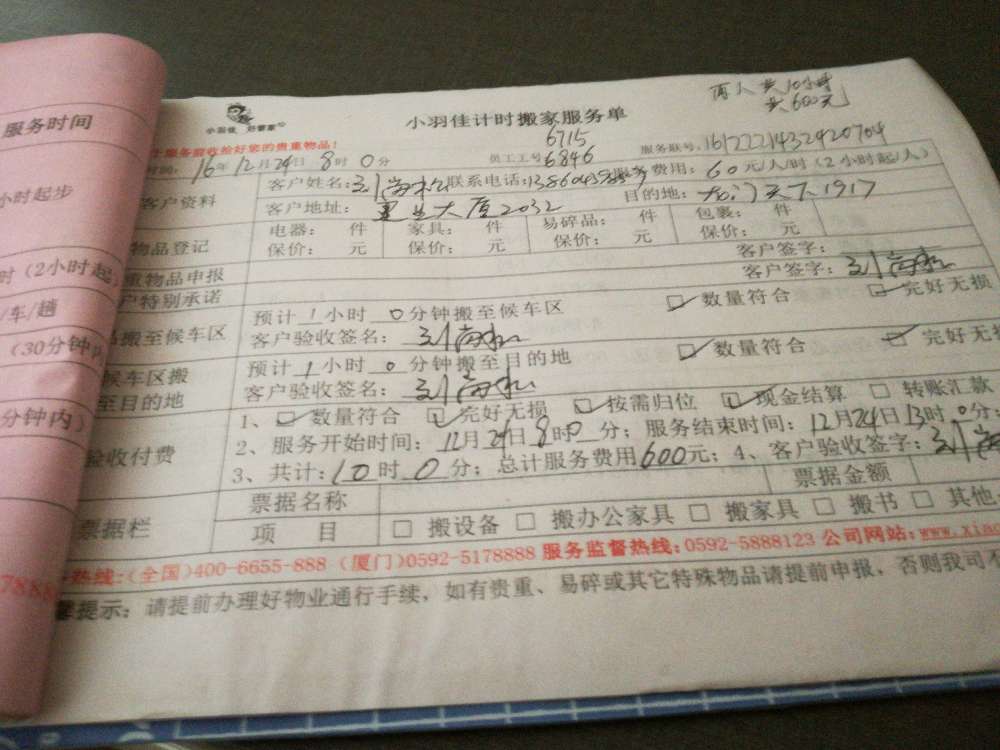 服务时间
小时起步
时（2小时起
/车/趟
（30分钟内
分钟内）
两人共10小时
共600元
小羽佳 好管家
小羽佳计时搬家服务单
服务前收拾好您的贵重物品！
时间：16年12月24日8时0分
员工工号 6715 6846
服务联号：1612221432420704
客户资料
客户姓名：
联系电话：
服务费用：60元/人/时（2小时起/人）
客户地址：大厦2032
目的地：1917
物品登记
电器： 件 家具： 件 易碎品： 件 包裹： 件
保价： 元 保价： 元 保价： 元 保价： 元
重物品申报
客户签字：
户特别承诺
客户签字：
搬至候车区
预计1小时0分钟搬至候车区 ☑数量符合 ☑完好无损
客户验收签名：
候车区搬
至目的地
预计1小时0分钟搬至目的地 ☑数量符合 ☑完好无
客户验收签名：
验收付费
1、☑数量符合 ☑完好无损 ☑按需归位 ☑现金结算 □转账汇款
2、服务开始时间：12月24日8时0分；服务结束时间：12月24日13时0分；
3、共计：10时0分；总计服务费用600元；4、客户验收签字：
票据栏
票据名称 票据金额
项 目 □搬设备 □搬办公家具 □搬家具 □搬书 □其他
热线：（全国）400-6655-888（厦门）0592-5178888 服务监督热线：0592-5888123 公司网站：www.xia
提示：请提前办理好物业通行手续，如有贵重、易碎或其它特殊物品请提前申报，否则我司不